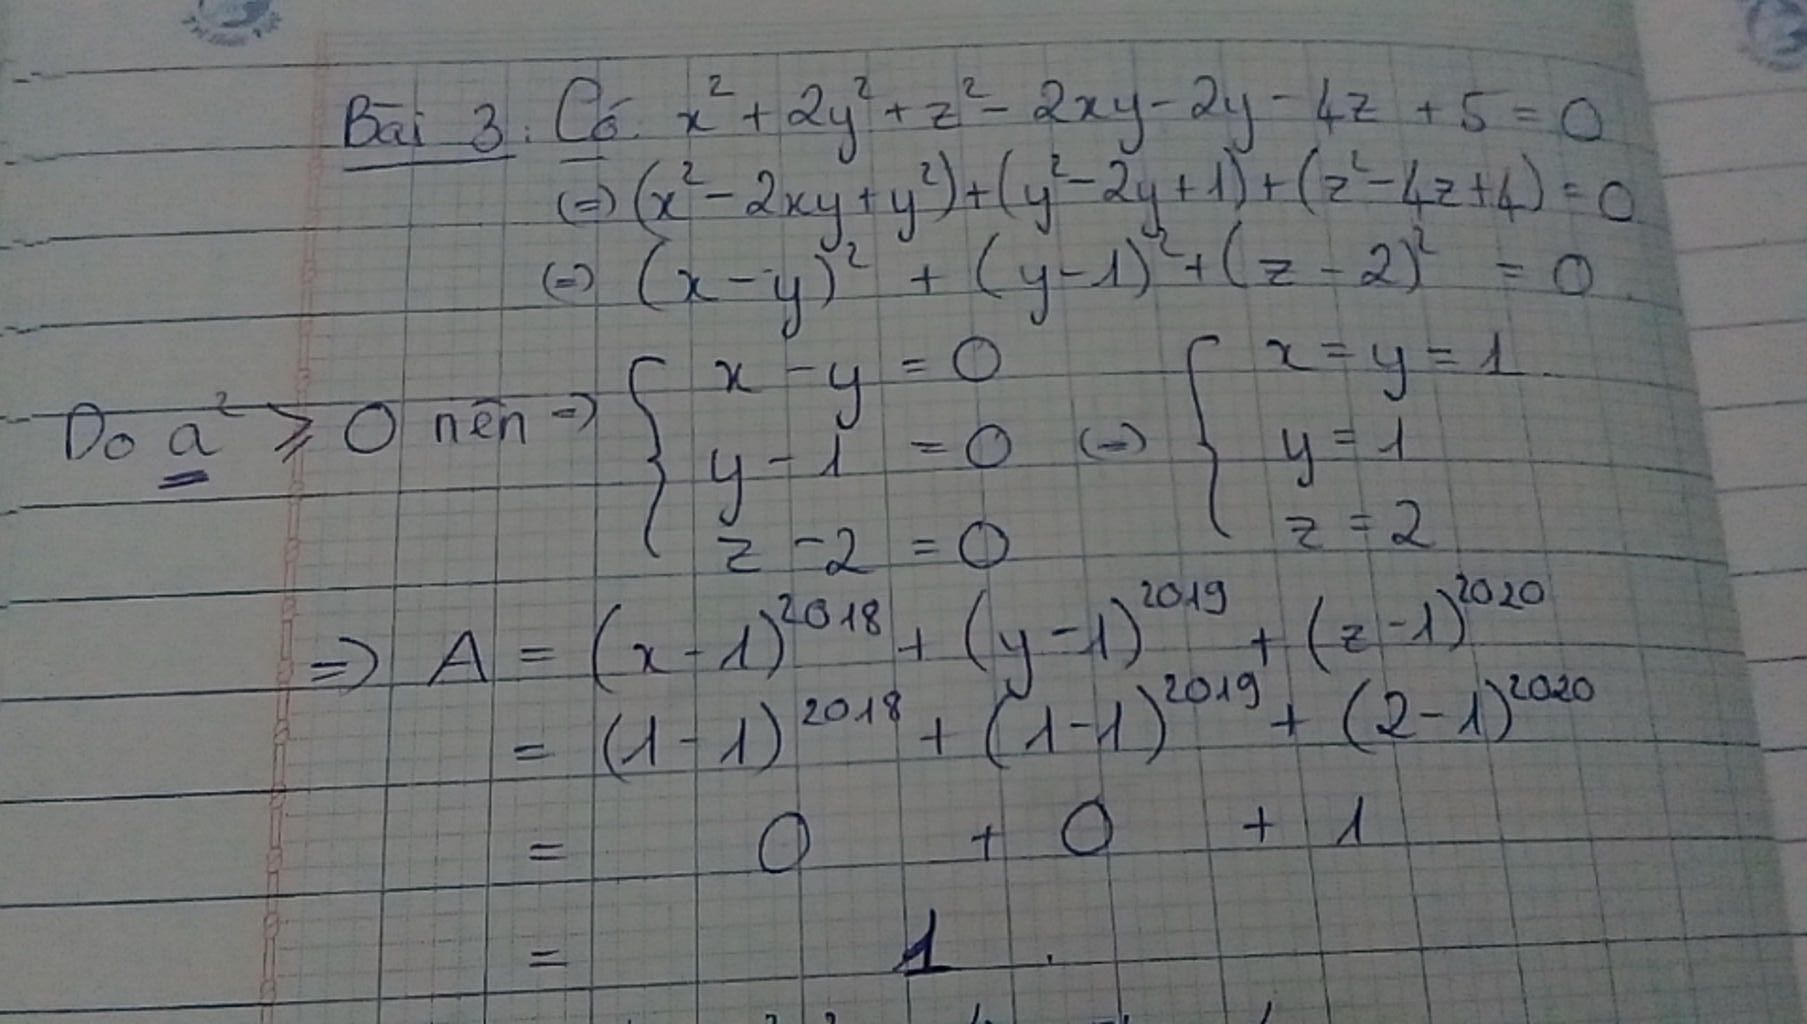 Bài 3: Có: x² + 2y² + z² - 2xy - 2y - 4z + 5 = 0
(=) (x² - 2xy + y²) + (y² - 2y + 1) + (z² - 4z + 4) = 0
(=) (x - y)² + (y - 1)² + (z - 2)² = 0
Do a² ⩾ 0 nên =) { x - y = 0 (=) { x = y = 1
y - 1 = 0 y = 1
z - 2 = 0 z = 2
=) A = (x - 1)²⁰¹⁸ + (y - 1)²⁰¹⁹ + (z - 1)²⁰²⁰
= (1 - 1)²⁰¹⁸ + (1 - 1)²⁰¹⁹ + (2 - 1)²⁰²⁰
= 0 + 0 + 1
= 1.